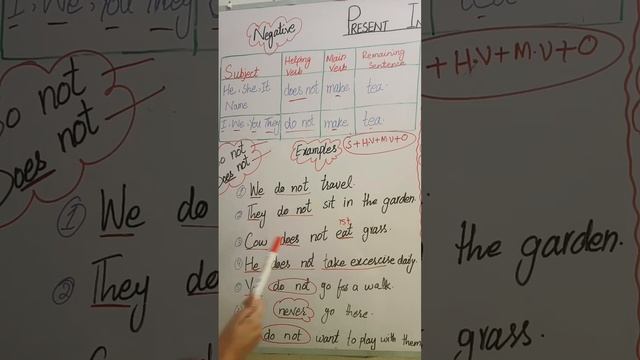 Negative
Present In
Subject Helping Verb Main Verb Remaining Sentence
He, She, It Name does not make tea.
I, We, You They do not make tea.
Do not
Does not
Examples S + H.V + M.V + O
① We do not travel.
② They do not sit in the garden.
1st
③ Cow does not eat grass.
④ He does not take excercise daily.
do not go for a walk.
never go there.
do not want to play with them